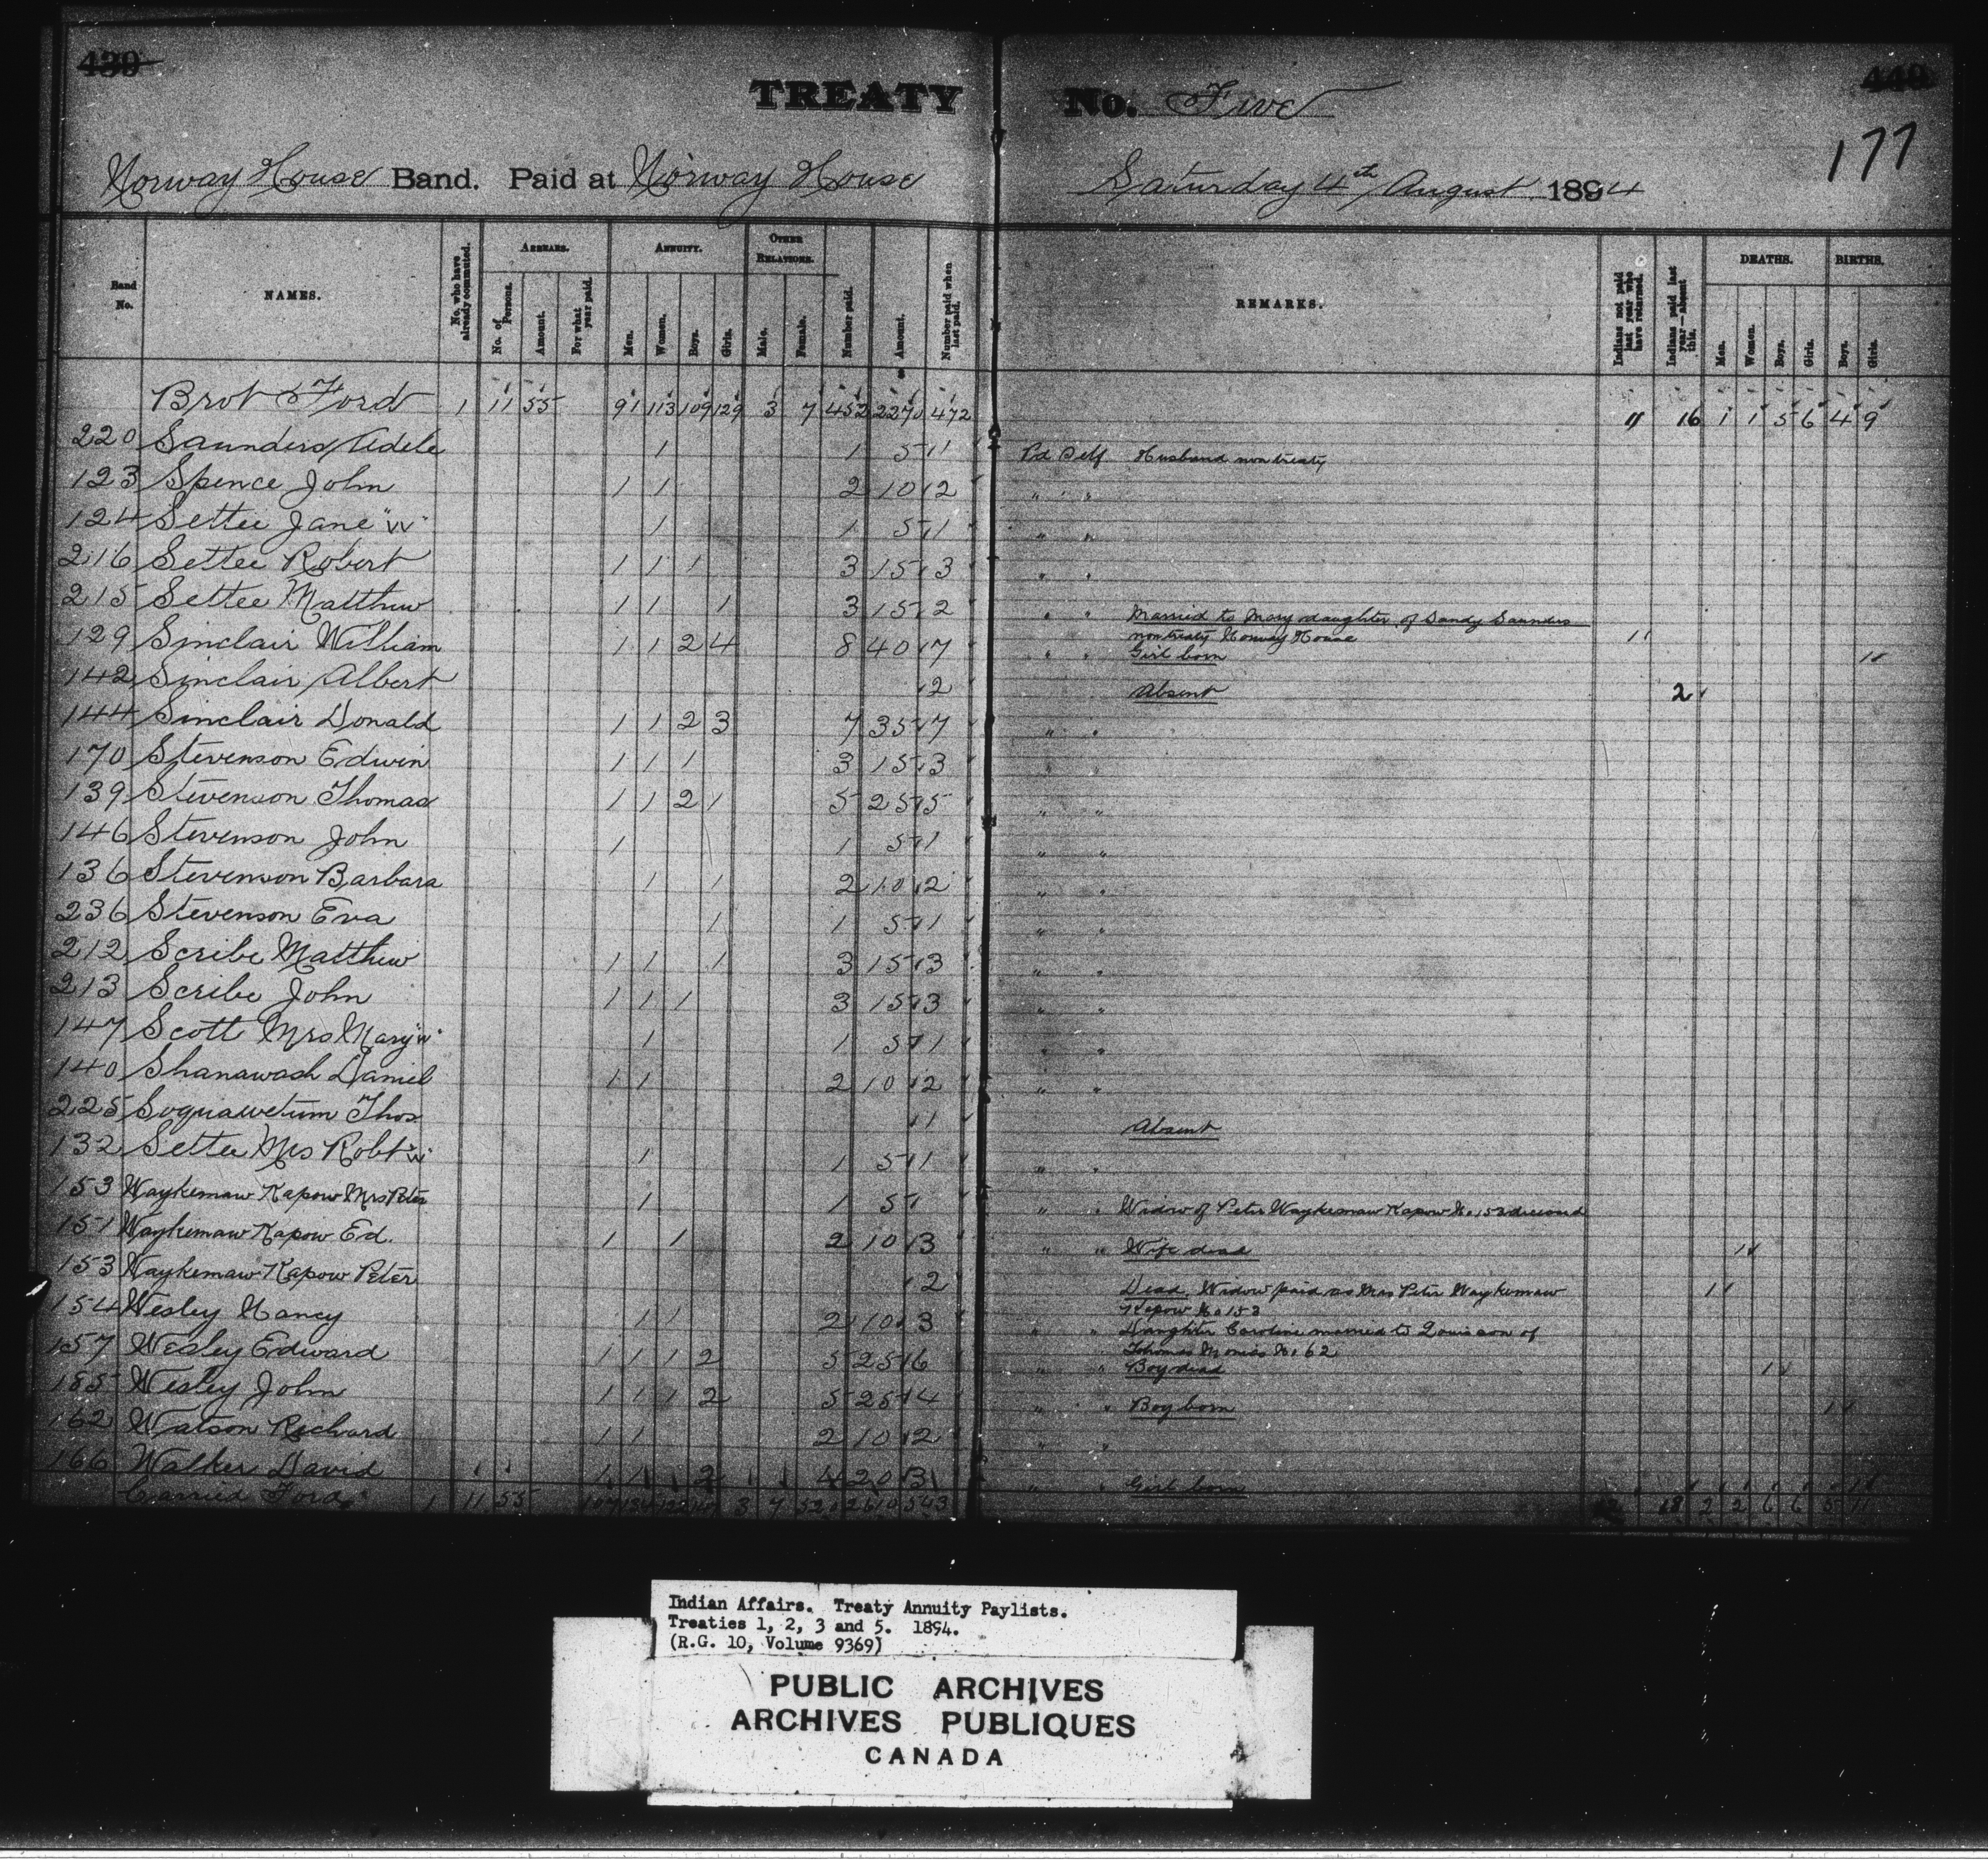 439 440
TREATY No. Five
177
Norway House Band. Paid at Norway House Saturday 4th August 1894
Band No. NAMES. No. who have already commuted. ARREARS. No. of Persons. Amount. For what year paid. ANNUITY. Men. Women. Boys. Girls. OTHER RELATIONS. Male. Female. Number paid. Amount. Number paid when last paid. REMARKS. Indians not paid last year who have returned. Indians paid last year—absent this. DEATHS. Men. Women. Boys. Girls. BIRTHS. Boys. Girls.
Brot Ford 1 11 55 91 113 109 129 3 7 452 2270 472 11 16 1 1 5 6 4 9
220 Saunders Adele 1 1 5 1 Pd Self Husband non treaty
123 Spence John 1 1 2 10 2 " "
124 Settee Jane "W" 1 1 5 1 " "
216 Settee Robert 1 1 1 3 15 3 " "
215 Settee Matthew 1 1 1 3 15 2 " " Married to Mary daughter of Sandy Saunders
non treaty Norway House 1
129 Sinclair William 1 1 2 4 8 40 7 " " Girl born 1
142 Sinclair Albert 2 Absent 2
144 Sinclair Donald 1 1 2 3 7 35 7 " "
170 Stevenson Edwin 1 1 1 3 15 3 " "
139 Stevenson Thomas 1 1 2 1 5 25 5 " "
146 Stevenson John 1 1 5 1 " "
136 Stevenson Barbara 1 1 2 10 2 " "
236 Stevenson Eva 1 1 5 1 " "
212 Scribe Matthew 1 1 1 3 15 3 " "
213 Scribe John 1 1 1 3 15 3 " "
147 Scott Mrs Mary "W" 1 1 5 1 " "
140 Shanawash Daniel 1 1 2 10 2 " "
225 Soquawetum Thos 1 Absent
132 Settee Mrs Robt "W" 1 1 5 1 " "
153 Waykemaw Kapow Mrs Peter 1 1 5 " " Widow of Peter Waykemaw Kapow No 153 deceased
151 Waykemaw Kapow Ed. 1 1 2 10 3 " " Wife dead 1
153 Waykemaw Kapow Peter 2 Dead. Widow paid as Mrs Peter Waykemaw 1
Kapow No 153
154 Wesley Nancy 1 1 2 10 3 " " Daughter Caroline married to Louis son of
Thomas Monias No 62
157 Wesley Edward 1 1 1 2 5 25 6 " " Boy dead 1
185 Wesley John 1 1 1 2 5 25 4 " " Boy born 1
162 Watson Richard 1 1 2 10 2 " "
166 Walker David 1 1 2 4 20 3 " " Girl born 1
Carried Ford 1 11 55 107 134 122 3 7 520 2610 543 18 2 2 6 6 5 11
Indian Affairs. Treaty Annuity Paylists.
Treaties 1, 2, 3 and 5. 1894.
(R.G. 10, Volume 9369)
PUBLIC ARCHIVES
ARCHIVES PUBLIQUES
CANADA